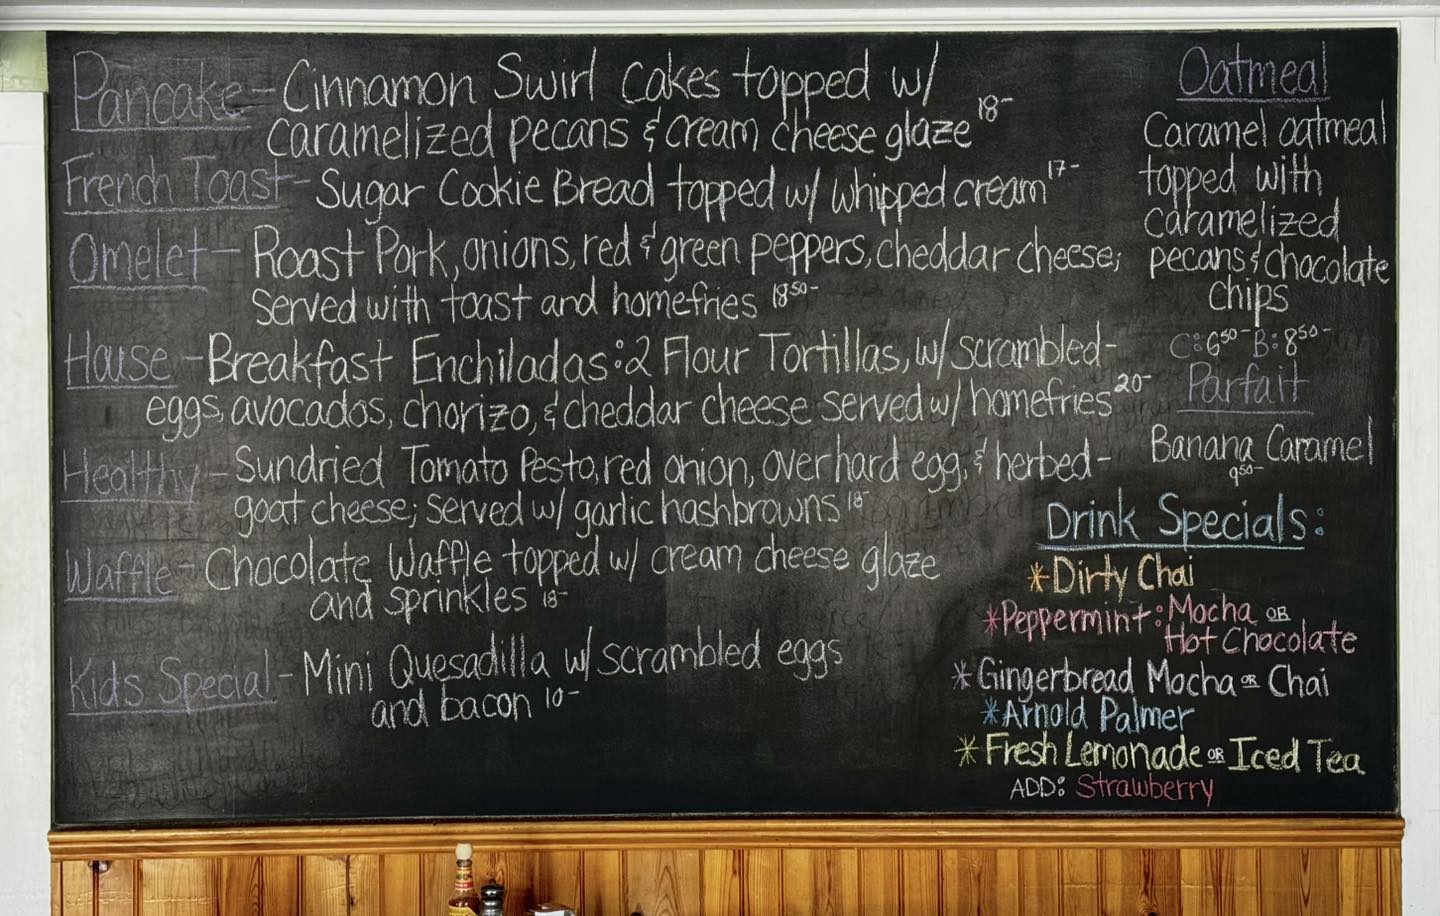 Pancake - Cinnamon Swirl Cakes topped w/
caramelized pecans & cream cheese glaze 18-
French Toast - Sugar Cookie Bread topped w/ whipped cream 17-
Omelet - Roast Pork, onions, red & green peppers, cheddar cheese;
served with toast and homefries 18.50-
House - Breakfast Enchiladas: 2 Flour Tortillas, w/ scrambled-
eggs, avocados, chorizo, & cheddar cheese served w/ homefries 20-
Healthy - Sundried Tomato Pesto, red onion, over hard egg, & herbed-
goat cheese; served w/ garlic hashbrowns 18-
Waffle - Chocolate Waffle topped w/ cream cheese glaze
and sprinkles 18-
Kids Special - Mini Quesadilla w/ scrambled eggs
and bacon 10-
Oatmeal
Caramel oatmeal
topped with
caramelized
pecans & chocolate
chips
C: 6.50- B: 8.50-
Parfait
Banana Caramel
9.50-
Drink Specials:
*Dirty Chai
*Peppermint: Mocha OR
Hot Chocolate
*Gingerbread Mocha OR Chai
*Arnold Palmer
*Fresh Lemonade OR Iced Tea
ADD: Strawberry